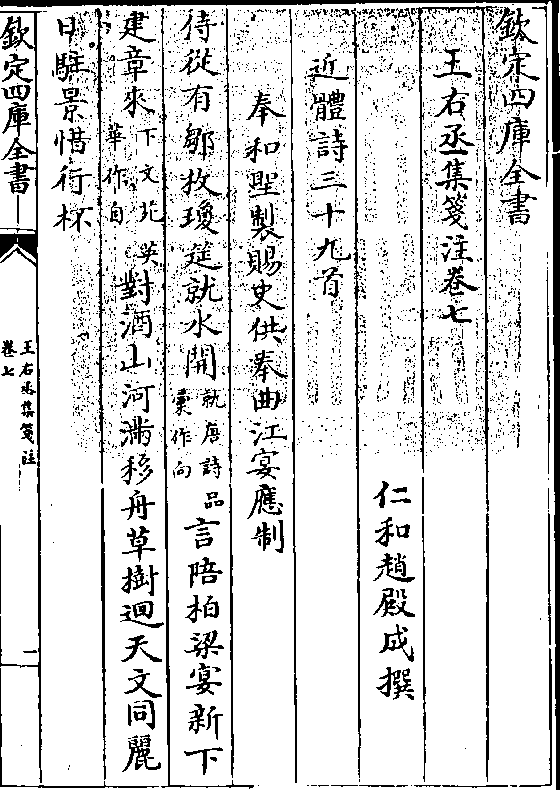 欽定四庫全書
王右丞集箋注卷七
仁和趙殿成撰
近體詩三十九首
奉和聖製賜史供奉曲江宴應制
侍從有鄒枚瓊筵就水開
就唐詩品
彙作向
言陪柏梁宴新下
建章來
下文苑英
華作自
對酒山河滿移舟草樹迴天文同麗
日駐景惜行杯
欽定四庫全書
王右丞集箋注
卷七
一